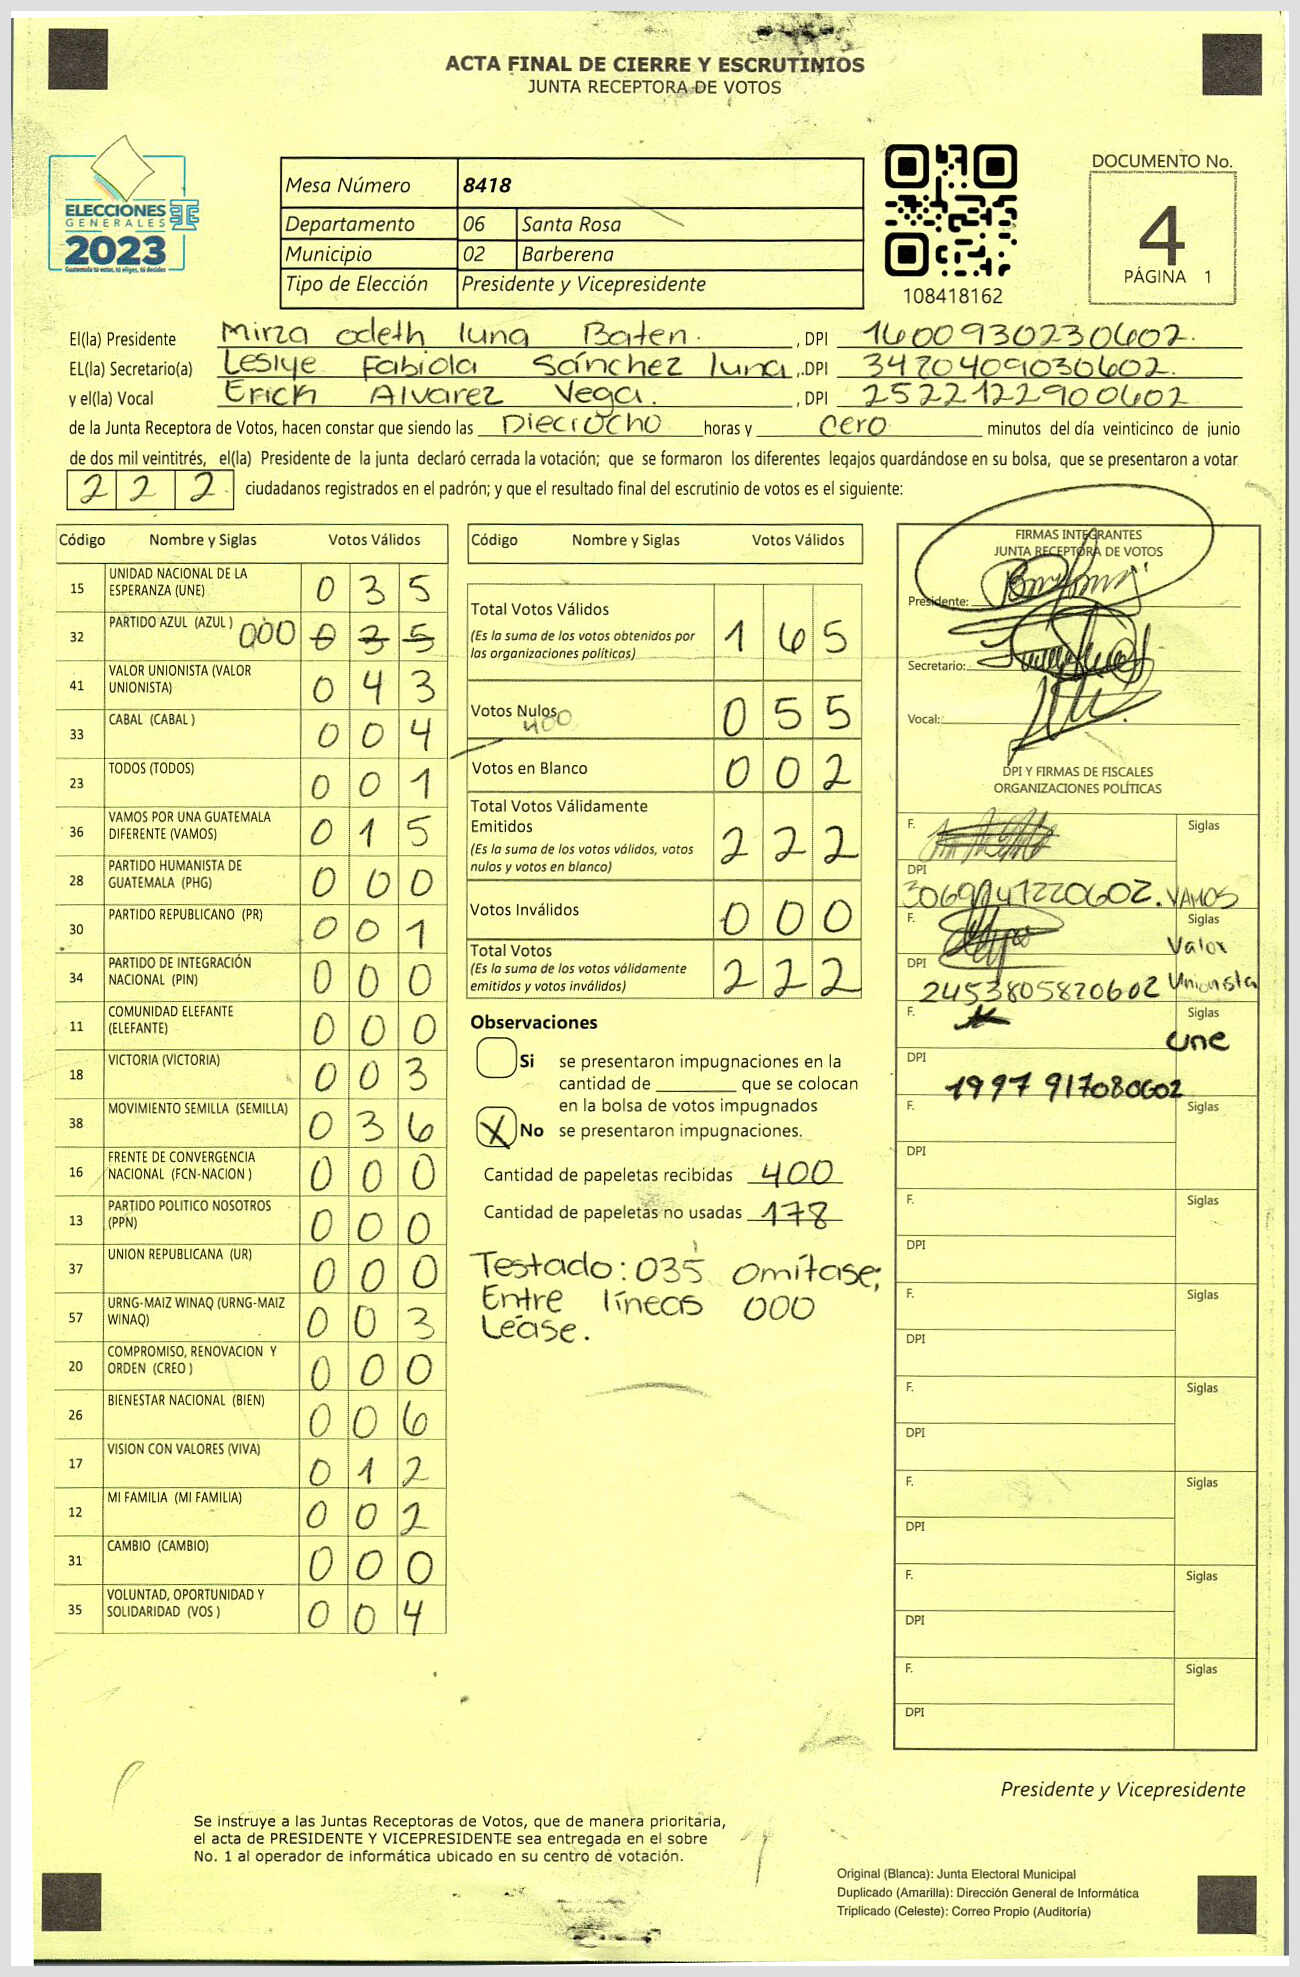 ACTA FINAL DE CIERRE Y ESCRUTINIOS
JUNTA RECEPTORA DE VOTOS
ELECCIONES
GENERALES
2023
Guatemala tú votas, tú eliges, tú decides
Mesa Número 8418
Departamento 06 Santa Rosa
Municipio 02 Barberena
Tipo de Elección Presidente y Vicepresidente
108418162
DOCUMENTO No.
4
PÁGINA 1
El(la) Presidente Mirza odeth luna Baten. , DPI 1600930230602.
EL(la) Secretario(a) Leslye Fabiola Sánchez luna , .DPI 3420409030602.
y el(la) Vocal Erick Alvarez Vega. , DPI 2522122900602
de la Junta Receptora de Votos, hacen constar que siendo las Dieciocho horas y cero minutos del día veinticinco de junio
de dos mil veintitrés, el(la) Presidente de la junta declaró cerrada la votación; que se formaron los diferentes legajos guardándose en su bolsa, que se presentaron a votar
2 2 2 ciudadanos registrados en el padrón; y que el resultado final del escrutinio de votos es el siguiente:
Código Nombre y Siglas Votos Válidos
15 UNIDAD NACIONAL DE LA ESPERANZA (UNE) 0 3 5
32 PARTIDO AZUL (AZUL ) 000 0 3 5
41 VALOR UNIONISTA (VALOR UNIONISTA) 0 4 3
33 CABAL (CABAL ) 0 0 4
23 TODOS (TODOS) 0 0 1
36 VAMOS POR UNA GUATEMALA DIFERENTE (VAMOS) 0 1 5
28 PARTIDO HUMANISTA DE GUATEMALA (PHG) 0 0 0
30 PARTIDO REPUBLICANO (PR) 0 0 1
34 PARTIDO DE INTEGRACIÓN NACIONAL (PIN) 0 0 0
11 COMUNIDAD ELEFANTE (ELEFANTE) 0 0 0
18 VICTORIA (VICTORIA) 0 0 3
38 MOVIMIENTO SEMILLA (SEMILLA) 0 3 6
16 FRENTE DE CONVERGENCIA NACIONAL (FCN-NACION ) 0 0 0
13 PARTIDO POLITICO NOSOTROS (PPN) 0 0 0
37 UNION REPUBLICANA (UR) 0 0 0
57 URNG-MAIZ WINAQ (URNG-MAIZ WINAQ) 0 0 3
20 COMPROMISO, RENOVACION Y ORDEN (CREO ) 0 0 0
26 BIENESTAR NACIONAL (BIEN) 0 0 6
17 VISION CON VALORES (VIVA) 0 1 2
12 MI FAMILIA (MI FAMILIA) 0 0 2
31 CAMBIO (CAMBIO) 0 0 0
35 VOLUNTAD, OPORTUNIDAD Y SOLIDARIDAD (VOS ) 0 0 4
Código Nombre y Siglas Votos Válidos
Total Votos Válidos 1 6 5
(Es la suma de los votos obtenidos por
las organizaciones políticas)
Votos Nulos 0 5 5
400
Votos en Blanco 0 0 2
Total Votos Válidamente
Emitidos 2 2 2
(Es la suma de los votos válidos, votos
nulos y votos en blanco)
Votos Inválidos 0 0 0
Total Votos 2 2 2
(Es la suma de los votos válidamente
emitidos y votos inválidos)
Observaciones
Si se presentaron impugnaciones en la
cantidad de ________ que se colocan
en la bolsa de votos impugnados
X No se presentaron impugnaciones.
Cantidad de papeletas recibidas 400
Cantidad de papeletas no usadas 178
Testado: 035 omítase;
Entre líneas 000
Léase.
FIRMAS INTEGRANTES
JUNTA RECEPTORA DE VOTOS
Presidente:
Secretario:
Vocal:
DPI Y FIRMAS DE FISCALES
ORGANIZACIONES POLÍTICAS
F. Siglas
DPI
VAMOS
F. Siglas
Valor
DPI
2453805820602 Unionista
F. Siglas
une
DPI
1997 917080602
F. Siglas
DPI
F. Siglas
DPI
F. Siglas
DPI
F. Siglas
DPI
F. Siglas
DPI
F. Siglas
DPI
F. Siglas
DPI
Presidente y Vicepresidente
Se instruye a las Juntas Receptoras de Votos, que de manera prioritaria,
el acta de PRESIDENTE Y VICEPRESIDENTE sea entregada en el sobre
No. 1 al operador de informática ubicado en su centro de votación.
Original (Blanca): Junta Electoral Municipal
Duplicado (Amarilla): Dirección General de Informática
Triplicado (Celeste): Correo Propio (Auditoría)